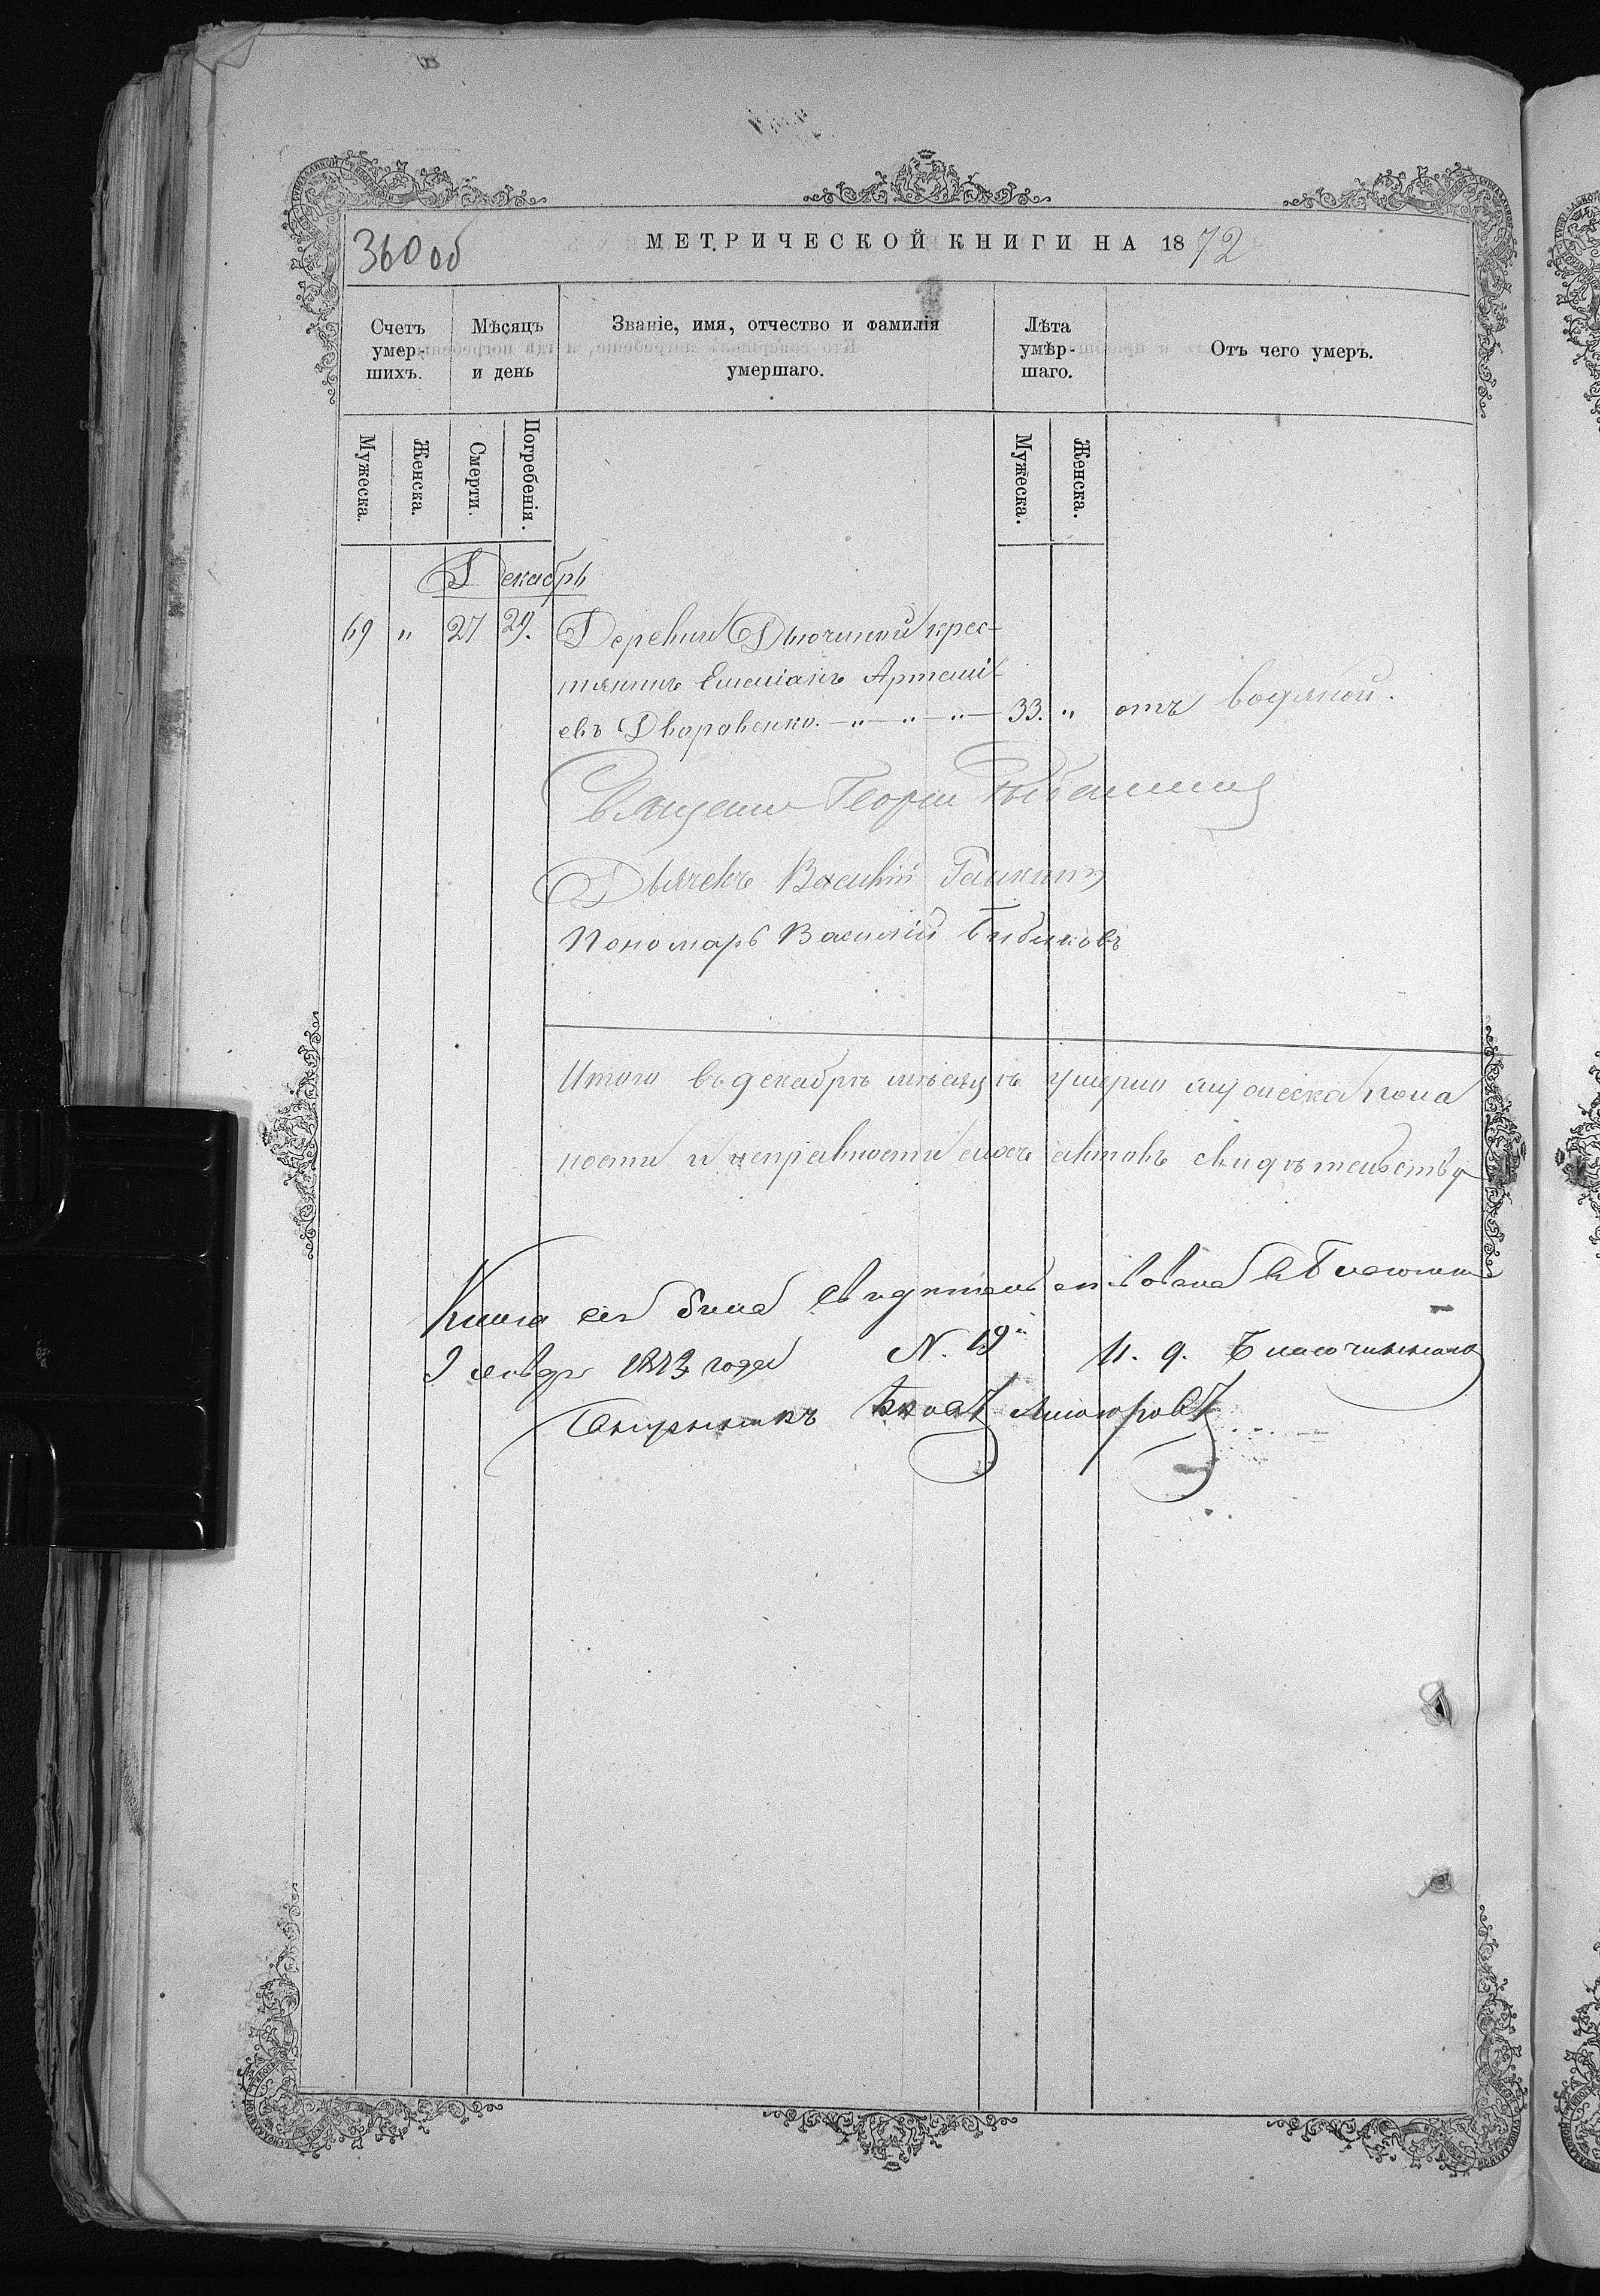 360 об
МЕТРИЧЕСКОЙ КНИГИ НА 1872
Счетъ умер-шихъ.
Мѣсяцъ и день
Званіе, имя, отчество и фамилія умершаго.
Лѣта умѣр-шаго.
Отъ чего умеръ.
Мужеска.
Женска.
Смерти.
Погребенія.
Мужеска.
Женска.
Декабрь
69 " 27 29. Деревни Дючиной крес-
тянинъ Емеліанъ Артемі-
евъ Дворовенко. —"—"—"— 33. " отъ водяной.
Священн Георгій
Дьячекъ Василій
Пономарь Василій Бибиковъ
Итого въ декабрѣ мѣсяцѣ умерло мужеска пола
ности и исправности сихъ актовъ свидѣтельству
Книга сія была свидѣтельствована
9 января 1873 года N. 19й И. д. Благочиннаго